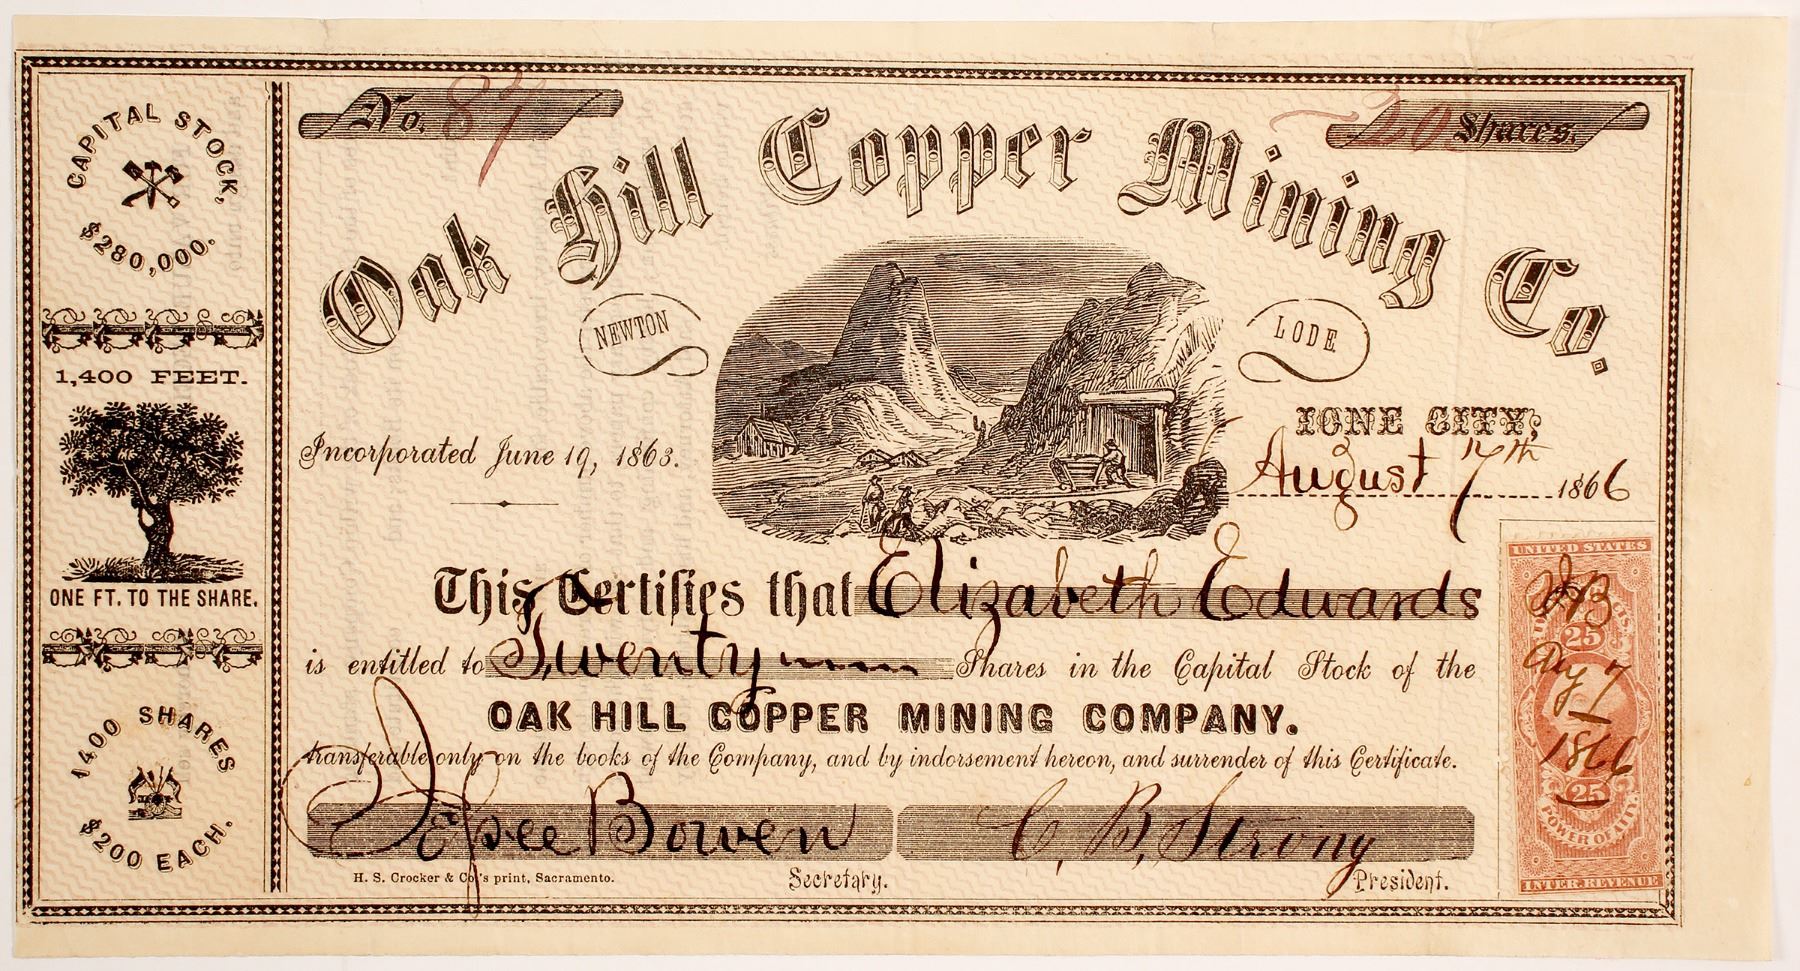 CAPITAL STOCK,
$280,000.
1,400 FEET.
ONE FT. TO THE SHARE.
1400 SHARES
$200 EACH.
No. 87
20 Shares.
Oak Hill Copper Mining Co.
NEWTON
LODE
Incorporated June 19, 1863.
IONE CITY,
August 7th 1866
This Certifies that Elizabeth Edwards
is entitled to Twenty Shares in the Capital Stock of the
OAK HILL COPPER MINING COMPANY.
transferable only on the books of the Company, and by indorsement hereon, and surrender of this Certificate.
Bowen
C. B. Strong
H. S. Crocker & Co.'s print, Sacramento.
Secretary.
President.
UNITED STATES
25
Aug 7
1866
25
POWER OF ATT'Y.
INTER. REVENUE